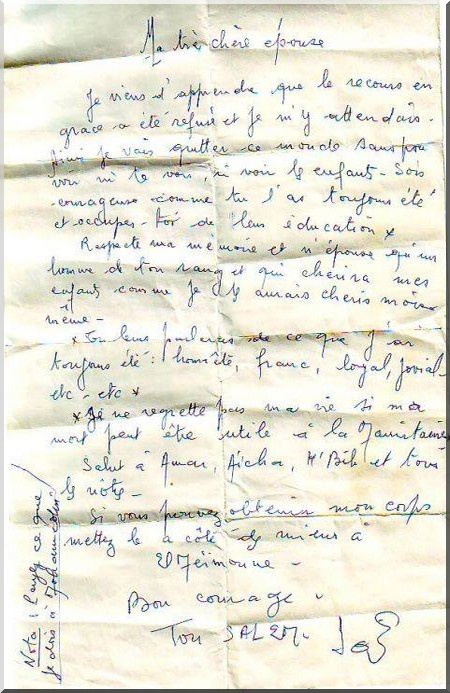 Ma très chère épouse
Je viens d'apprendre que le recours en
grâce a été refusé et je m'y attendais.
Ainsi je vais quitter ce monde sans pou
voir ni te voir, ni voir les enfants - Sois
courageuse comme tu l'as toujours été
et occupes-toi de leur éducation x
Respecte ma mémoire et n'épouse qu'un
homme de ton rang et qui chérira mes
enfants comme je les aurais chéris moi x
même -
x Tu leur parleras de ce que j'ai
toujours été : honnête, franc, loyal, jovial
etc - etc x
x Je ne regrette pas ma vie si ma
mort peut être utile à la Mauritanie
Salut à Amar, Aïcha, M'Bih et tous
les nôtres -
Si vous pouvez obtenir mon corps
mettez le à côté des miens à
El Meimoune -
Bon courage -
Ton SALEM.
Nota : Payez ce que
je dois à